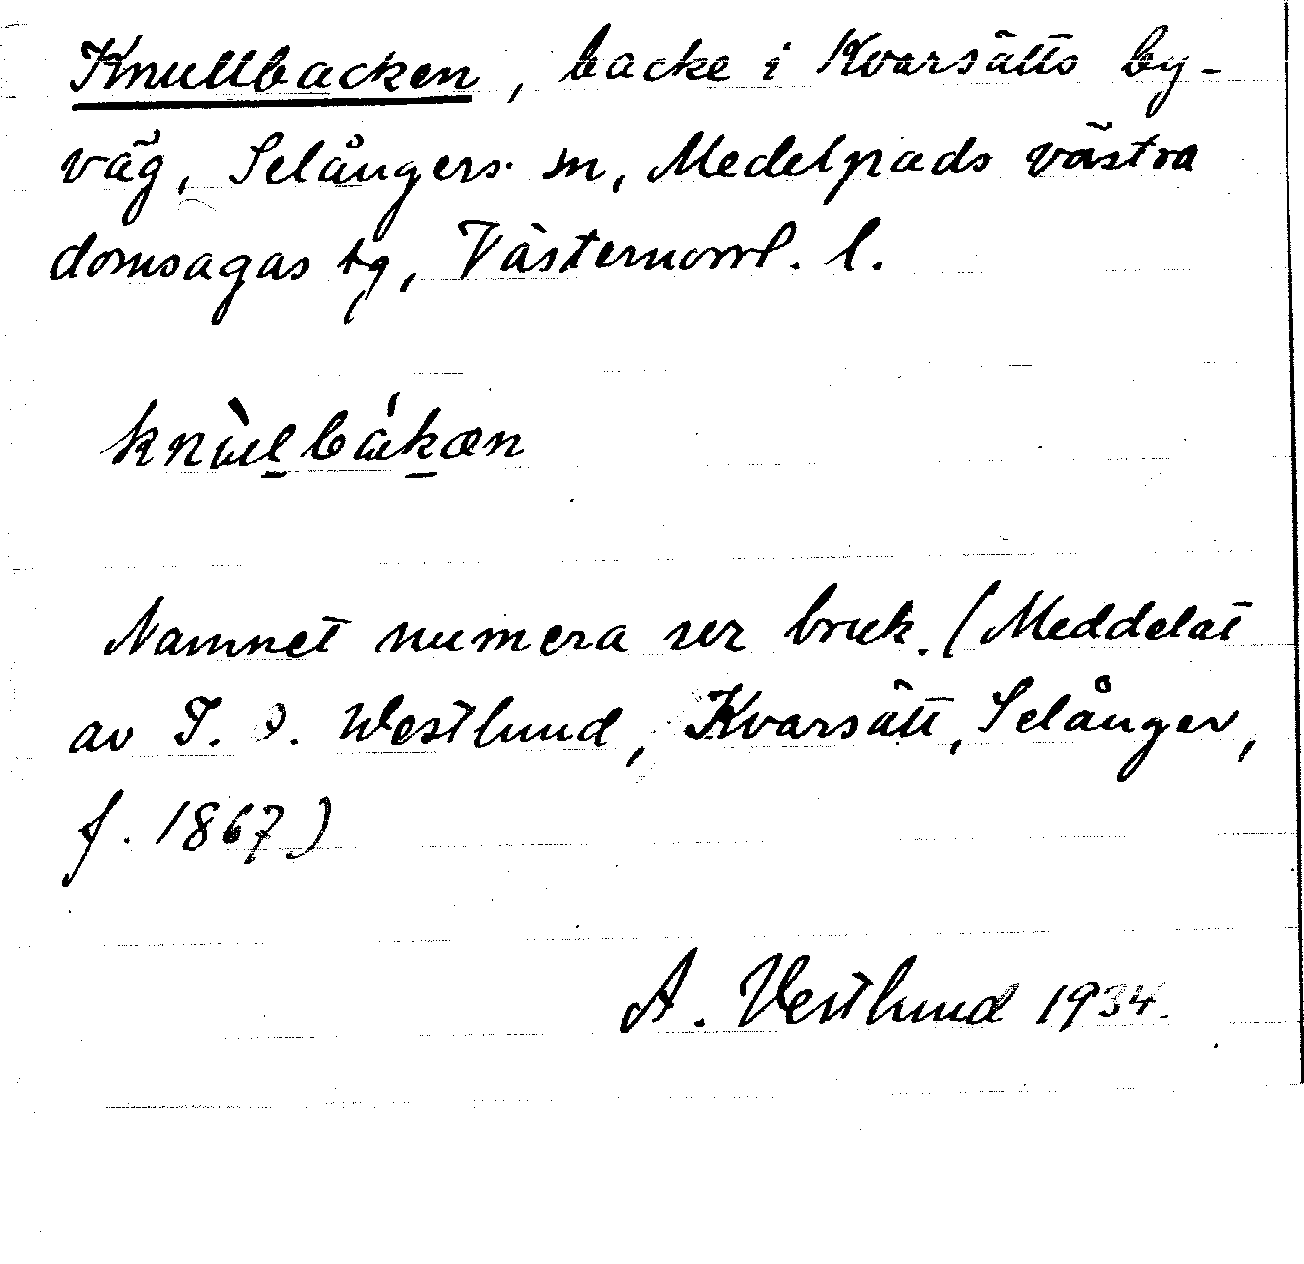 Knullbacken, backe i Kvarsätts by-
väg, Selångers sn, Medelpads västra
domsagas tg, Västernorrl. l.
knùl̲bákæn
Namnet numera ur bruk. (Meddelat
av T. O. Westlund, Kvarsätt, Selånger,
f. 1867)
A. Vestlund 1934.